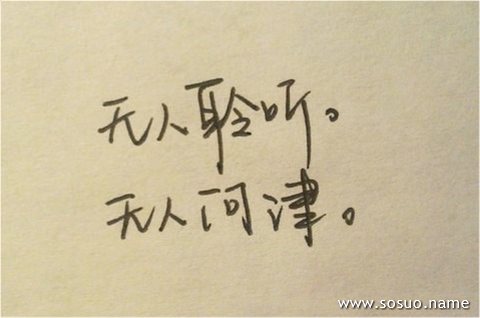 无人聆听。
无人问津。
www.sosuo.name